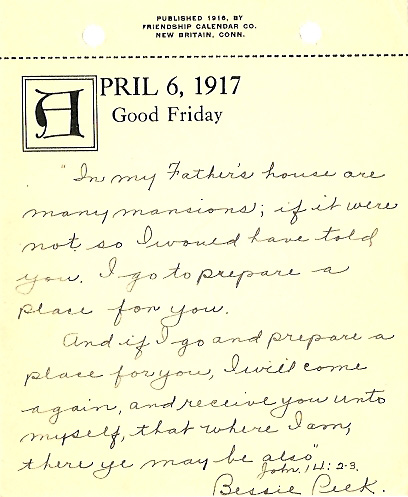 PUBLISHED 1916, BY
FRIENDSHIP CALENDAR CO.
NEW BRITAIN, CONN.
APRIL 6, 1917
Good Friday
"In my Father's house are
many mansions; if it were
not so I would have told
you. I go to prepare a
place for you.
And if I go and prepare a
place for you, I will come
again, and receive you unto
myself, that where I am,
there ye may be also"
John, 14: 2-3.
Bessie Peek.